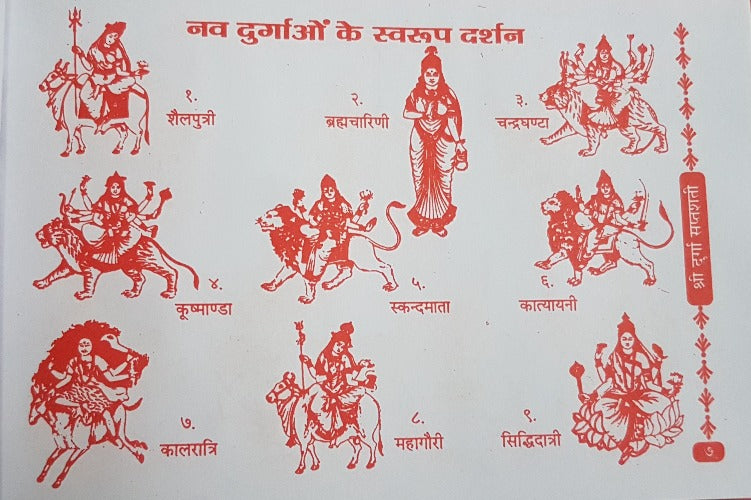 नव दुर्गाओं के स्वरूप दर्शन
१.
शैलपुत्री
२.
ब्रह्मचारिणी
३.
चन्द्रघण्टा
४.
कूष्माण्डा
५.
स्कन्दमाता
६.
कात्यायनी
७.
कालरात्रि
८.
महागौरी
९.
सिद्धिदात्री
श्री दुर्गा सप्तशती
७